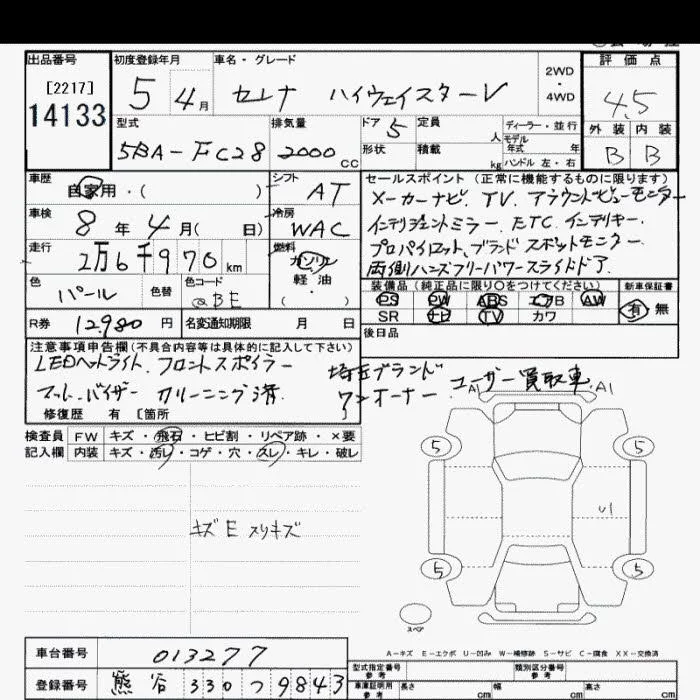 出品番号 初度登録年月 車名・グレード 2WD・4WD 評価点
[2217]
14133 5 4月 セレナ ハイウェイスターV 4.5
型式 排気量 ドア 5 定員 人 ディーラー・並行 外装 内装
モデル年式 年式
5BA-FC28 2000cc 形状 積載 kg ハンドル 左・右 B B
車歴 自家用・( ) シフト AT
セールスポイント (正常に機能するものに限ります)
メーカーナビ. TV. アラウンドビューモニター
車検 8年 4月( 日) 冷房 WAC
インテリジェントミラー. ETC. インテリキー.
走行 2万6千970km 燃料 ガソリン 軽油・
プロパイロット. ブラインドスポットモニター.
両側ハンズフリーパワースライドドア
色 パール 色替 色コード QBE
装備品 (純正品に限り○をつけてください) 新車保証書
PS PW ABS エアB AW 有 無
SR ナビ TV カワ
R券 12.980円 名変通知期限 月 日
後日品
注意事項申告欄(不具合内容等は具体的に記入して下さい)
LEDヘッドライト. フロントスポイラー
マット.バイザー クリーニング済.
埼玉ブランド
ワンオーナー. ユーザー買取車.
修復歴 有 〔箇所
検査員 FW キズ・飛石・ヒビ割・リペア跡・×要
記入欄 内装 キズ・汚レ・コゲ・穴・スレ・キレ・破レ
キズE スリキズ
A1 A1
5 5
U1
5 5
スペア
A-キズ E-エクボ U-凹み W-補修跡 S-サビ C-腐食 XX-交換済
車台番号 013277
登録番号 熊谷 330 つ 9843
型式指定番号 参考 類別区分番号 参考
車庫証明用 参考 長さ cm 幅 cm 高さ cm